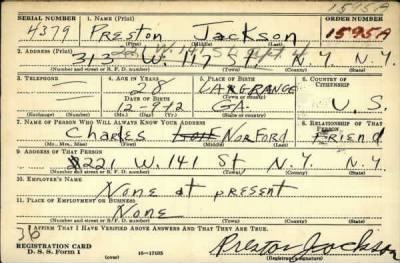 1595A
SERIAL NUMBER 1. NAME (Print) ORDER NUMBER
4379 Preston Jackson 1595A
(First) (Middle) (Last)
2. ADDRESS (Print) 22 W. 141 St
313 W. 117 St. N.Y. N.Y.
(Number and street or R. F. D. number) (Town) (County) (State)
3. TELEPHONE 4. AGE IN YEARS 5. PLACE OF BIRTH 6. COUNTRY OF CITIZENSHIP
28 LARGRANGE
DATE OF BIRTH (Town or county)
12-8-12 GA. U.S.
(Exchange) (Number) (Mo.) (Day) (Yr.) (State or country)
7. NAME OF PERSON WHO WILL ALWAYS KNOW YOUR ADDRESS 8. RELATIONSHIP OF THAT PERSON
Charles NORFORD Friend
(Mr., Mrs., Miss) (First) (Middle) (Last)
9. ADDRESS OF THAT PERSON
221 W. 141 St N.Y. N.Y
(Number and street or R. F. D. number) (Town) (County) (State)
10. EMPLOYER'S NAME
None at present
11. PLACE OF EMPLOYMENT OR BUSINESS
None
(Number and street or R. F. D. number) (Town) (County) (State)
I AFFIRM THAT I HAVE VERIFIED ABOVE ANSWERS AND THAT THEY ARE TRUE.
36
REGISTRATION CARD
D. S. S. Form 1 (over) 16—17105 Preston Jackson